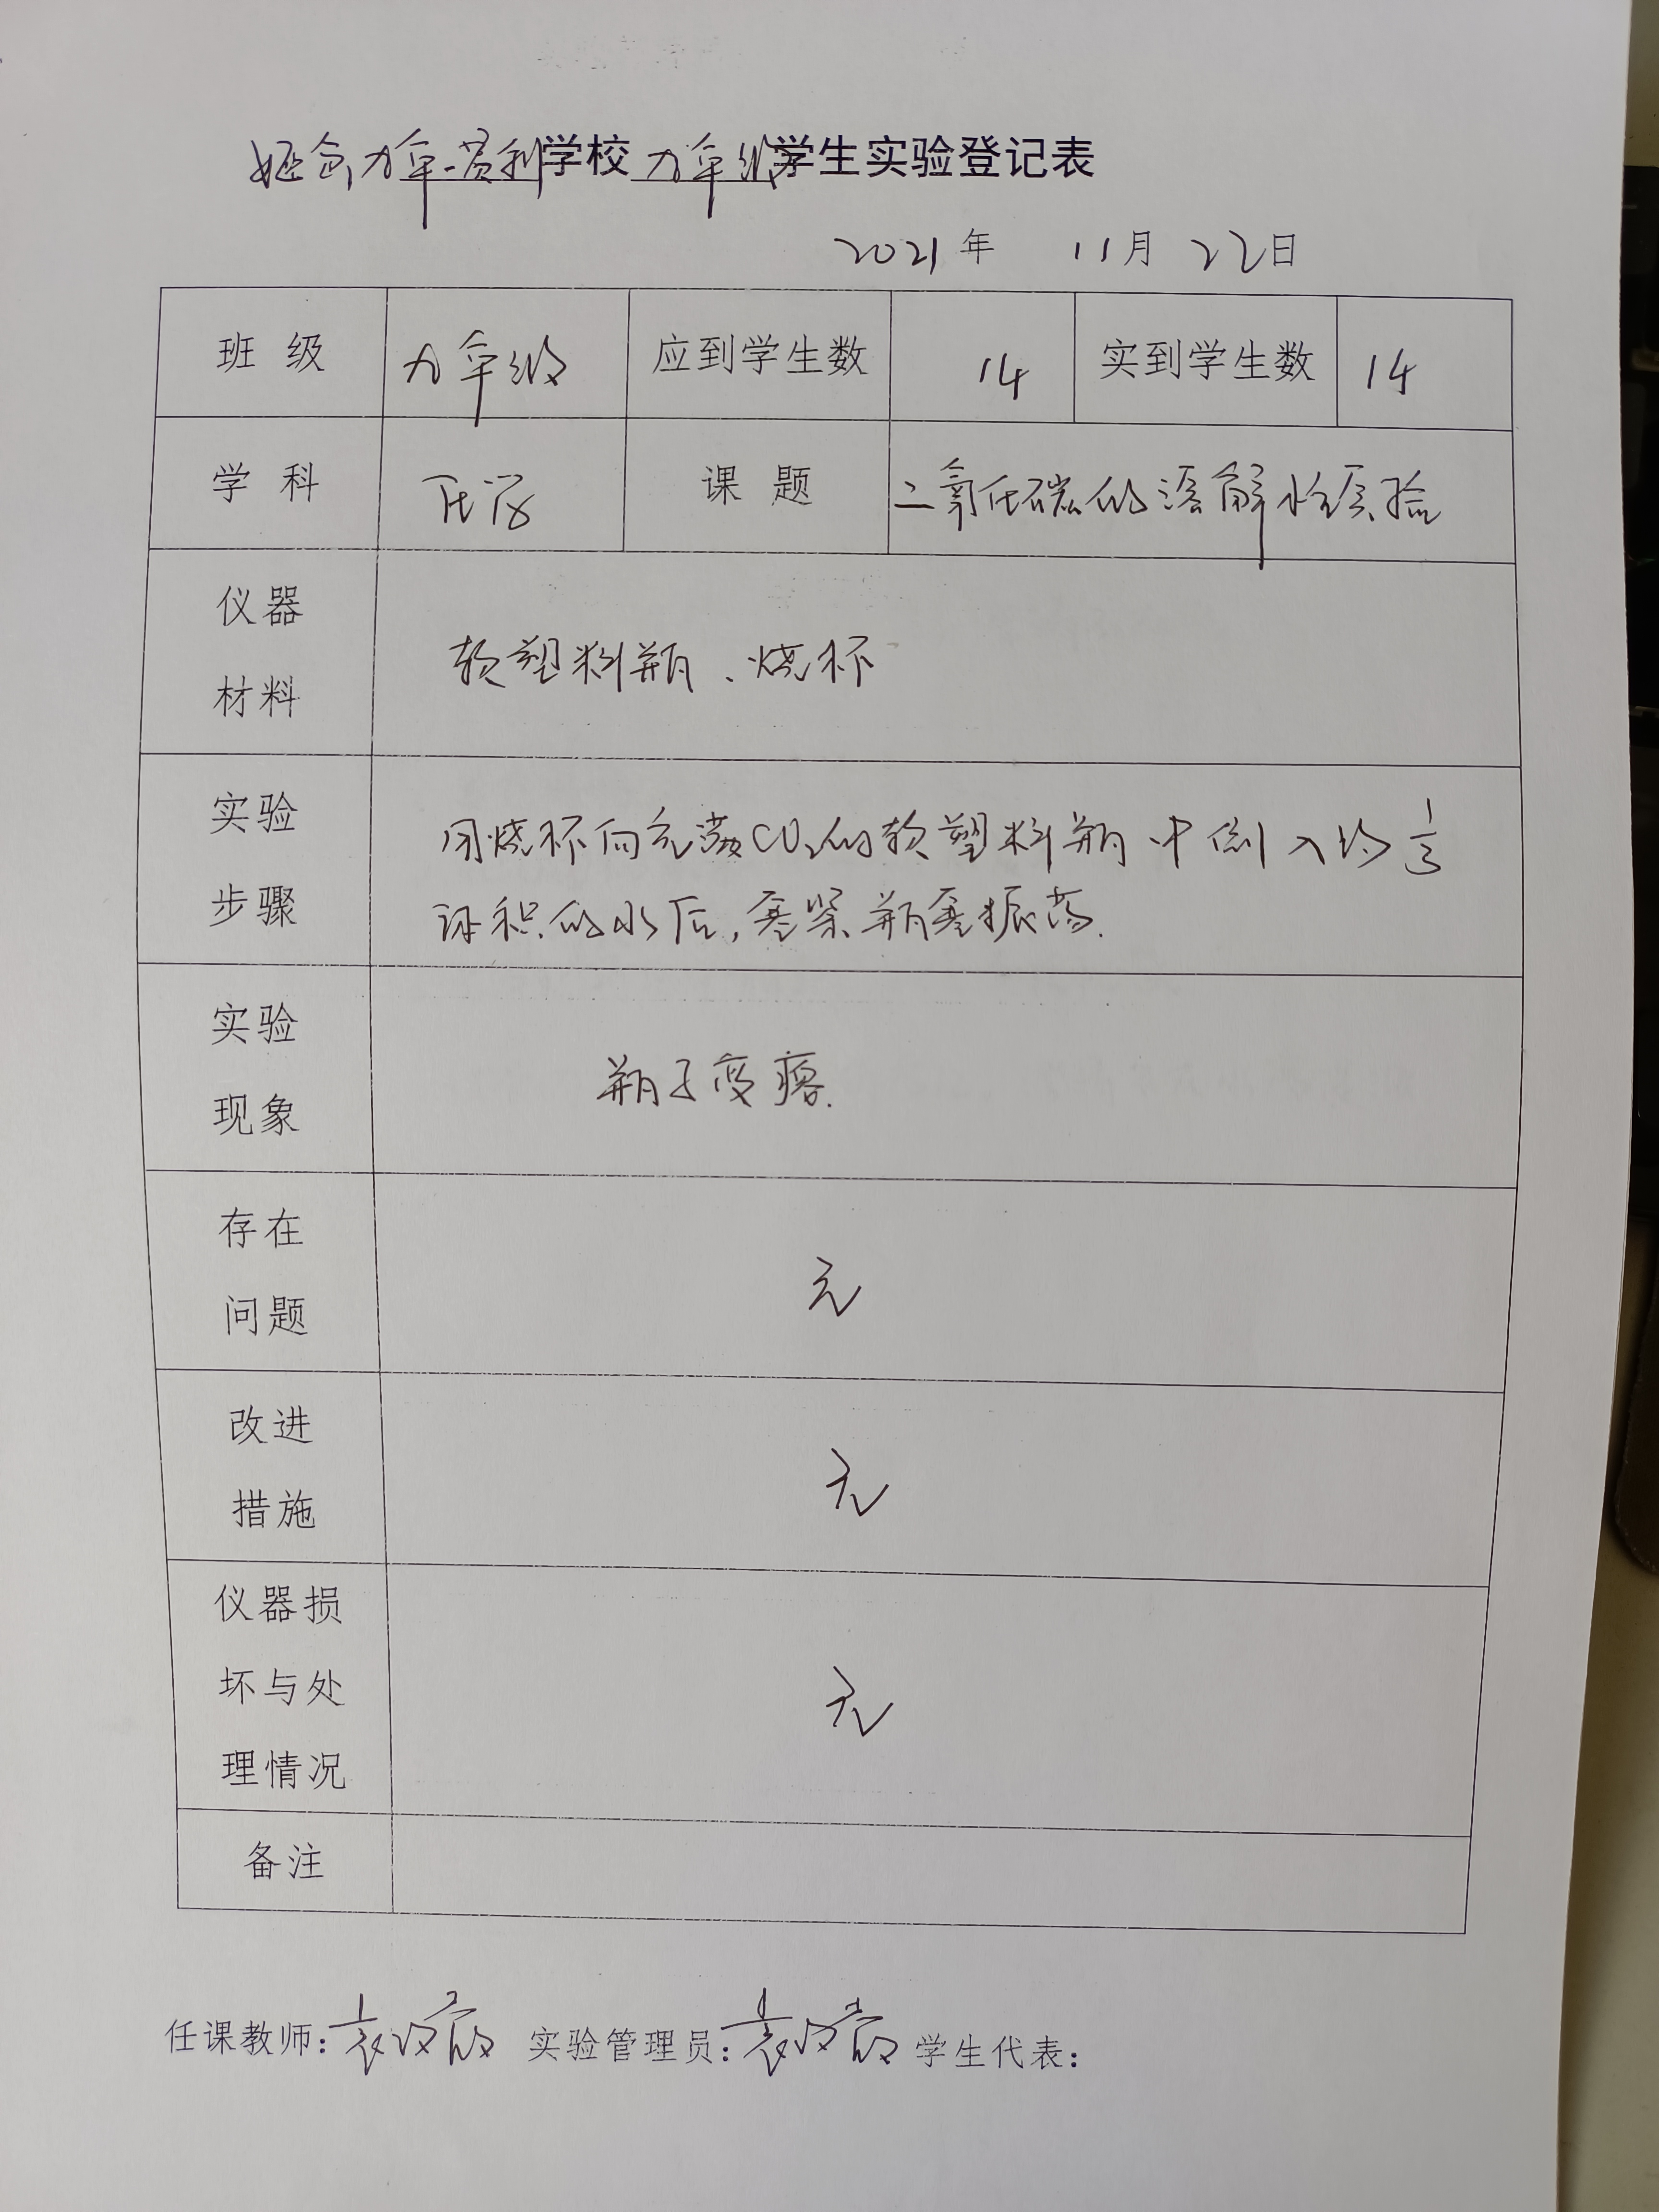 姬家九年一贯制学校九年级学生实验登记表
2021年 11月 22日
班 级 九年级 应到学生数 14 实到学生数 14
学 科 化学 课 题 二氧化碳的溶解性实验
仪器
材料
软塑料瓶、烧杯
实验
步骤
用烧杯向充满CO₂的软塑料瓶中倒入约1/3
体积的水后,塞紧瓶塞振荡.
实验
现象
瓶子变瘪.
存在
问题
无
改进
措施
无
仪器损
坏与处
理情况
无
备注
任课教师: 实验管理员: 学生代表: